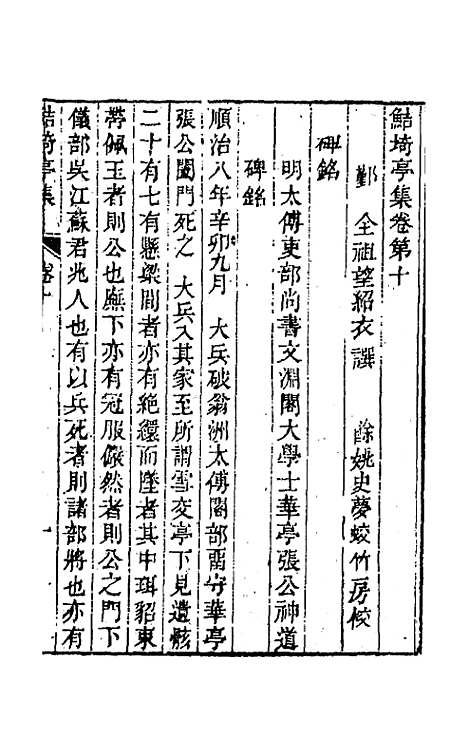 鮚埼亭集卷第十
鄞　全祖望紹衣譔　餘姚史夢蛟竹房校
碑銘
明太傅吏部尚書文淵閣大學士華亭張公神道
碑銘
順治八年辛卯九月　大兵破翁洲太傅閣部留守華亭
張公闔門死之　大兵入其家至所謂雪交亭下見遺骸
二十有七有懸梁間者亦有絕繯而墜者其中珥貂束
帶佩玉者則公也廡下亦有冠服儼然者則公之門下
儀部吳江蘇君兆人也有以兵死者則諸部將也亦有
鮚埼亭集　卷十　一